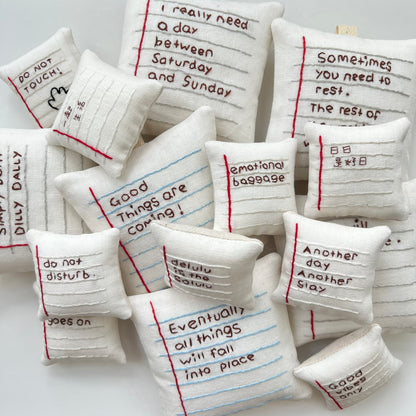 I really need
a day
between
Saturday
and Sunday
Sometimes
you need to
rest.
The rest of
DO NOT
TOUCH!
日日
是好日
emotional
baggage
Good
Things are
coming!
DILLY DALLY
do not
disturb.
delulu
is the
solulu
Another
day
Another
slay
goes on
Eventually
all things
will fall
into place
Good
vibes
only